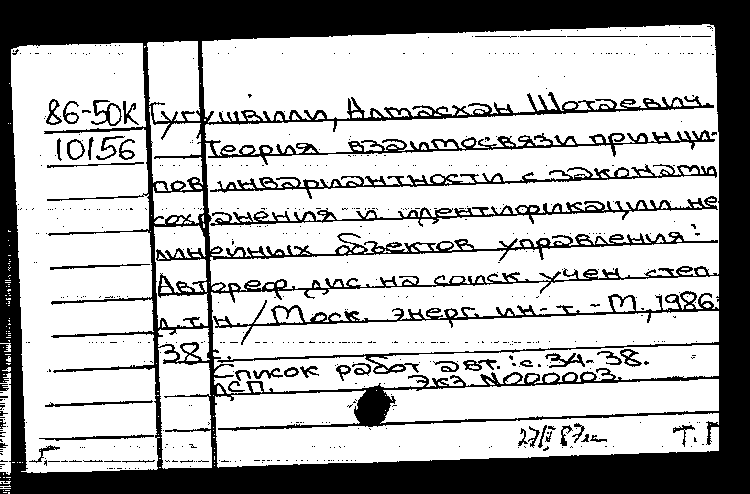 86-50К Гугушвили, Алтасхан Шотаевич.
10156 Теория взаимосвязи принци-
пов инвариантности с законами
сохранения и идентификации не
линейных объектов управления:
Автореф. дис. на соиск. учен. степ.
д.т.н. / Моск. энерг. ин-т. - М, 1986.
38с.
Список работ авт.: с. 34-38.
ДСП. Экз N000003.
Т.Г
Г